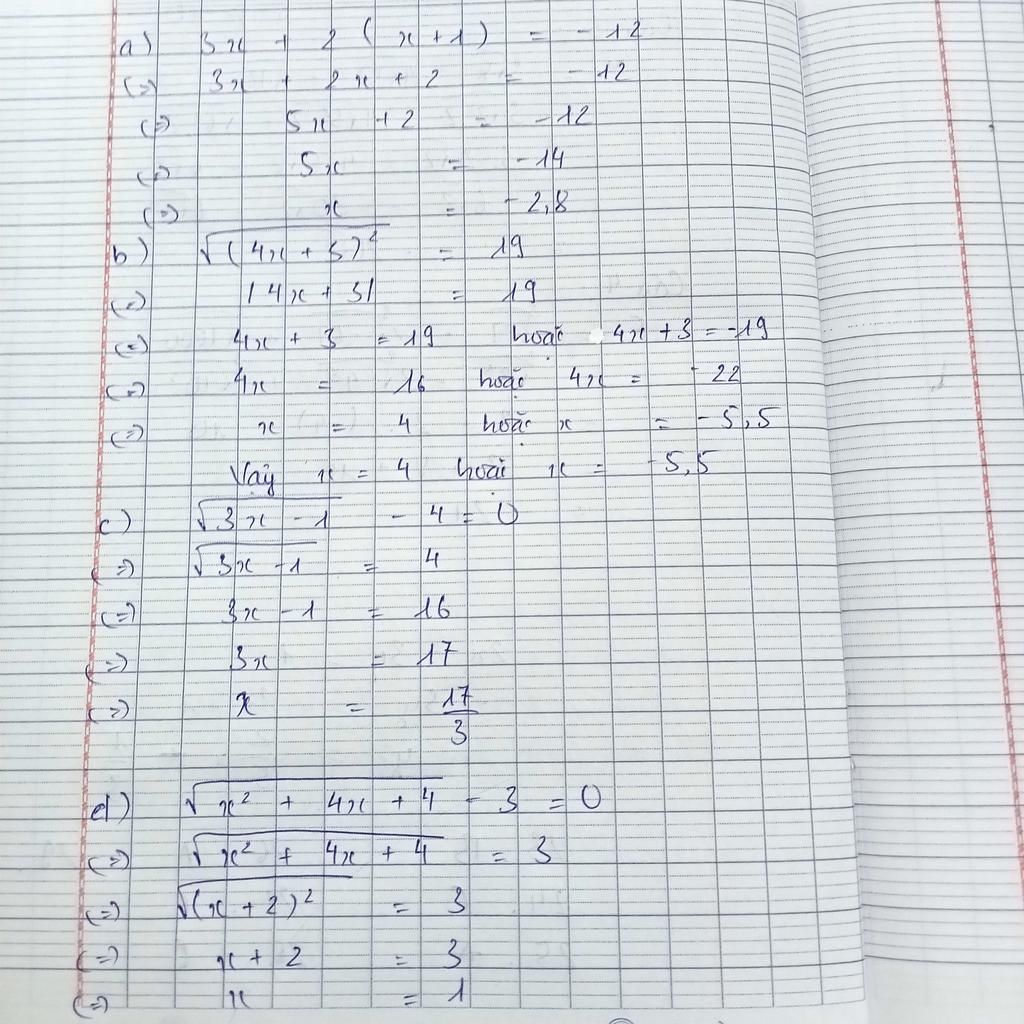 a) 3x + 2 ( x + 1 ) = - 12
(=) 3x + 2x + 2 = - 12
(=) 5x + 2 = - 12
(=) 5x = - 14
(=) x = - 2,8
b) √(4x + 3)² = 19
(=) |4x + 3| = 19
(=) 4x + 3 = 19 hoặc 4x + 3 = -19
(=) 4x = 16 hoặc 4x = - 22
(=) x = 4 hoặc x = - 5,5
Vậy x = 4 hoặc x = - 5,5
c) √3x - 1 - 4 = 0
(=) √3x - 1 = 4
(=) 3x - 1 = 16
(=) 3x = 17
(=) x = 17/3
d) √x² + 4x + 4 - 3 = 0
(=) √x² + 4x + 4 = 3
(=) √(x + 2)² = 3
(=) x + 2 = 3
(=) x = 1